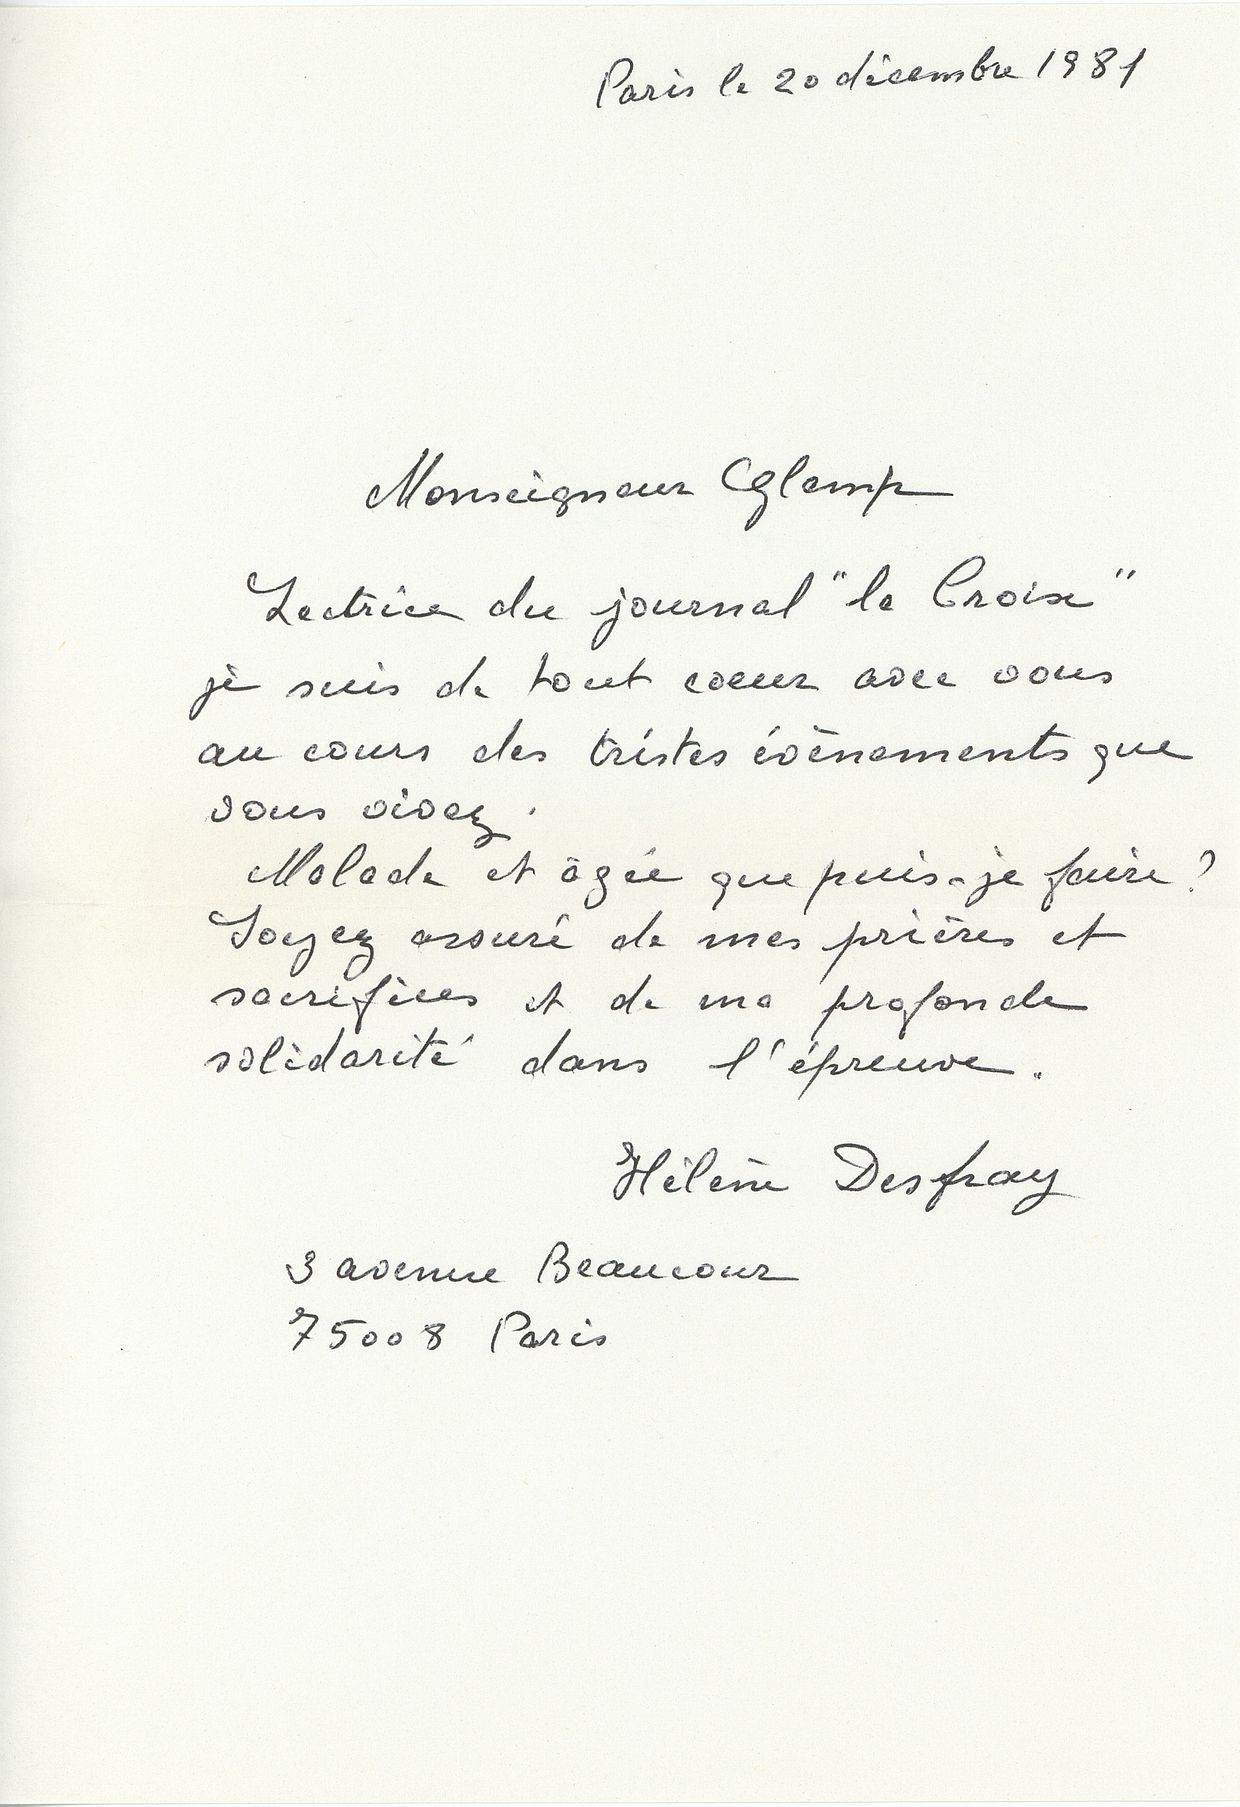 Paris le 20 décembre 1981
Monseigneur Cglemp
Lectrice du journal "la Croix"
je suis de tout coeur avec vous
au cours des tristes évènements que
vous vivez.
Malade et âgée que puis-je faire ?
Soyez assuré de mes prières et
sacrifices et de ma profonde
solidarité dans l'épreuve.
Hélène Desfray
3 avenue Beaucour
75008 Paris